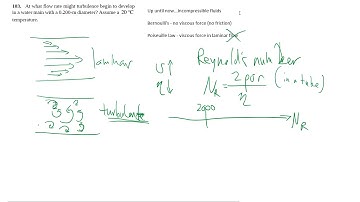 103. At what flow rate might turbulence begin to develop
in a water main with a 0.200-m diameter? Assume a 20 °C
temperature.
Up until now...incompressible fluids
Bernoulli's - no viscous force (no friction)
Poiseuille law - viscous force in laminar flow
laminar
turbulent
v↑
η↓
Reynold's number
N_R = 2ρvr / η (in a tube)
2000
N_R